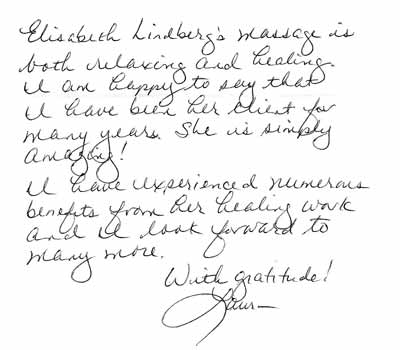 Elisabeth Lindberg's massage is
both relaxing and healing.
I am happy to say that
I have been her client for
many years. She is simply
amazing!
I have experienced numerous
benefits from her healing work
and I look forward to
many more.
With gratitude!